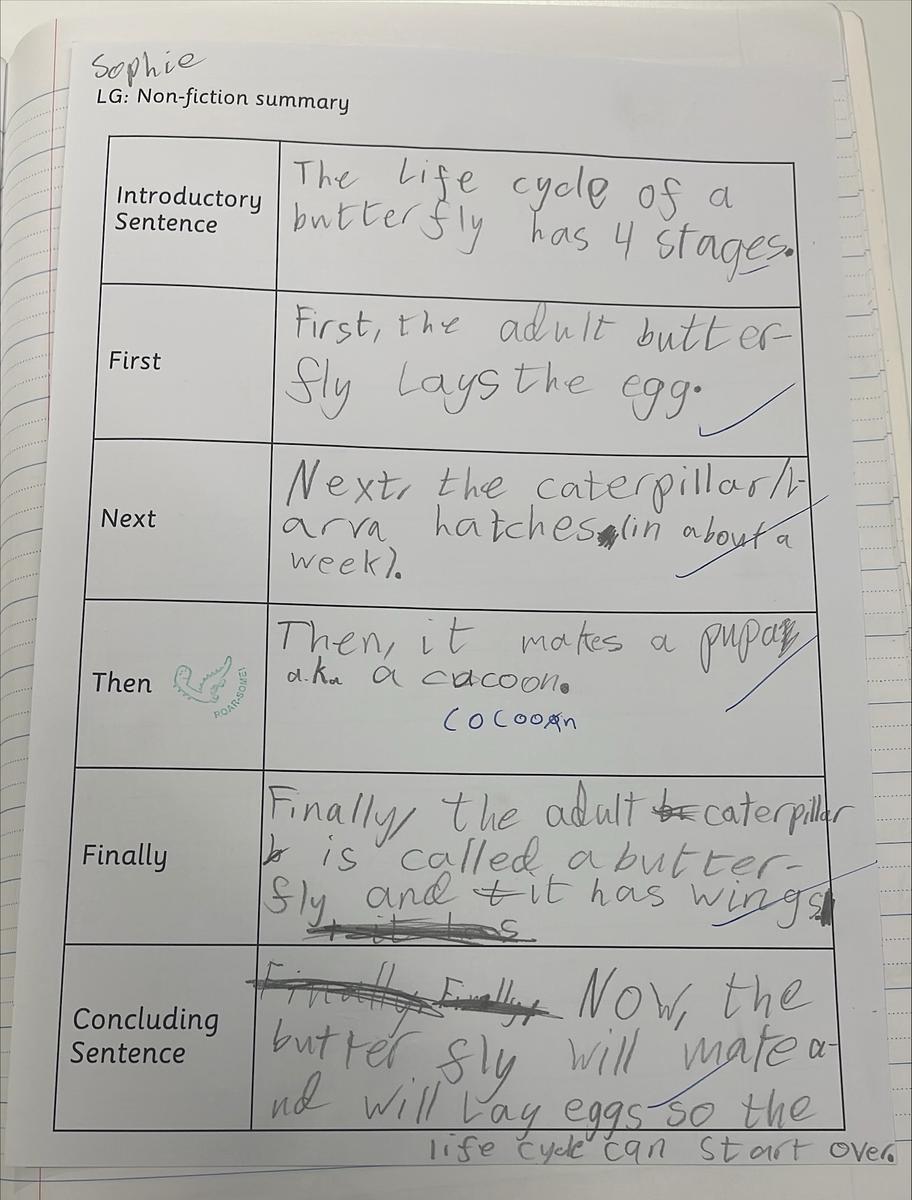 Sophie
LG: Non-fiction summary
Introductory
Sentence
The Life cycle of a
butterfly has 4 stages.
First
First, the adult butter-
fly Lays the egg.
Next
Next, the caterpillar/l-
arva hatches (in about a
week).
Then
ROAR-SOME!
Then, it makes a pupa
a.k.a a cacoon.
cocoon
Finally
Finally, the adult caterpillar
is called a butter-
fly and it has wings
Concluding
Sentence
Finally, Finally, Now, the
butterfly will mate a-
nd will Lay eggs so the
life cycle can start over.